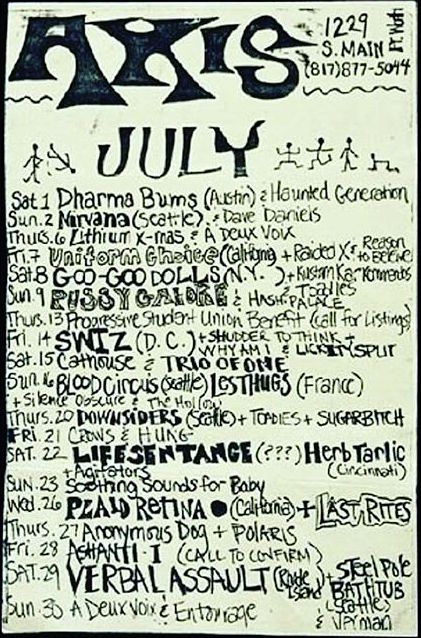 AXIS
1229
S. MAIN
Ft. Worth
(817)877-5044
JULY
Sat 1 Dharma Bums (Austin) & Haunted Generation
Sun. 2 Nirvana (Seattle) & Dave Daniels
Thurs. 6 Lithium X-mas & A Deux Voix
Fri. 7 Uniform Choice (California) + Raided X & Reason to Believe
Sat. 8 GOO-GOO DOLLS (N.Y. ) + Kustom Kar Kommandos
Sun. 9 PUSSY GALORE & HASH PALACE & Toadies
Thurs. 13 Progressive Student Union Benefit (call for Listings)
Fri. 14 SWIZ (D.C.) + SHUDDER TO THINK +
WHY AM I & LICKITY SPLIT
Sat. 15 Cathouse & TRIO OF ONE
Sun. 16 BLOOD CIRCUS (Seattle) LES THUGS (France)
+ Silence Obscure & The Hollow
Thurs. 20 DOWNSIDERS (Seattle) + TOADIES + SUGARBITCH
FRI. 21 CROWS & HUNG
SAT. 22 LIFE SENTANCE (???) Herb Tarlic
+ Agitators (Cincinnati)
SUN. 23 Soothing Sounds for Baby
Wed. 26 PLAID RETINA (California) + LAST RITES
Thurs. 27 Anonymous Dog + POLARIS
Fri. 28 ASHANTI-I (CALL TO CONFIRM)
SAT. 29 VERBAL ASSAULT (Rhode Island) + STEEL POLE BATH TUB (Seattle) & VRMAN
Sun. 30 A Deux Voix & Entourage